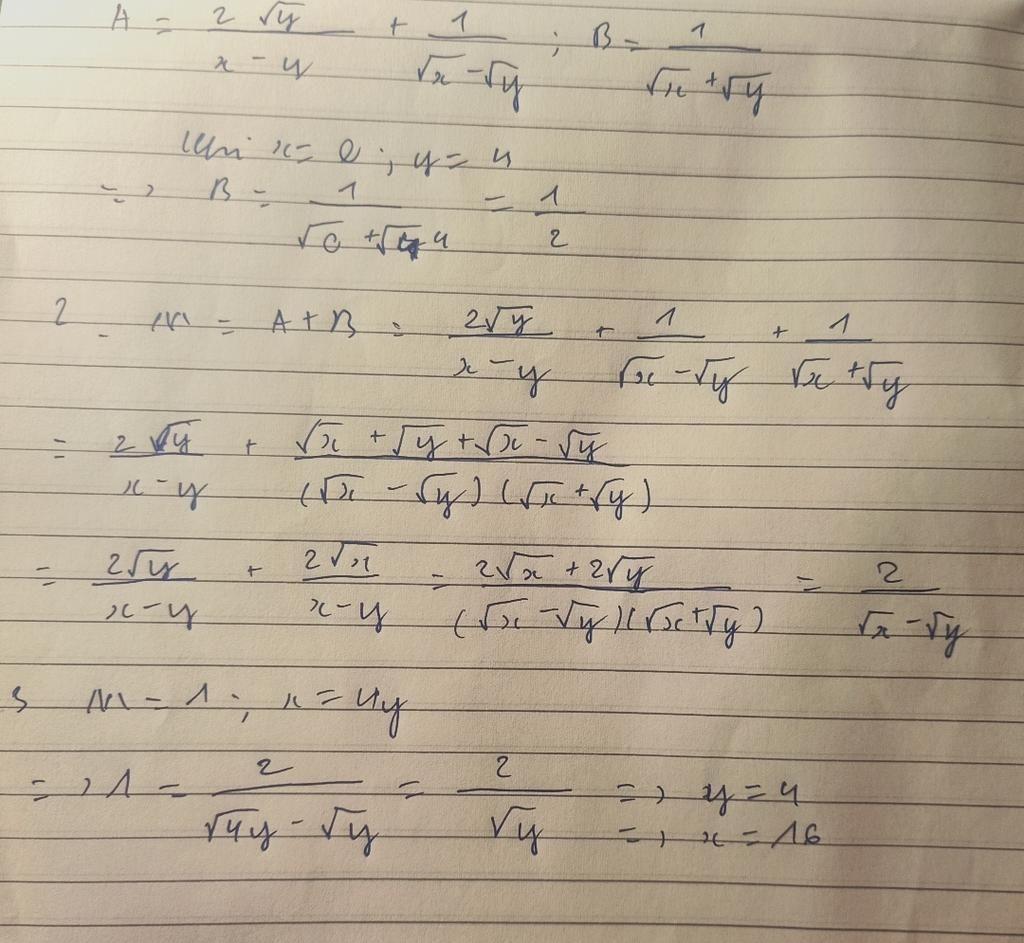 A = 2√y / (x - y) + 1 / (√x - √y) ; B = 1 / (√x + √y)
Khi x = 0 ; y = 4
=> B = 1 / (√0 + √4) = 1/2
2 - M = A + B = 2√y / (x - y) + 1 / (√x - √y) + 1 / (√x + √y)
= 2√y / (x - y) + (√x + √y + √x - √y) / ((√x - √y)(√x + √y))
= 2√y / (x - y) + 2√x / (x - y) = (2√x + 2√y) / ((√x - √y)(√x + √y)) = 2 / (√x - √y)
3 M = 1 ; x = 4y
=> 1 = 2 / (√4y - √y) = 2 / √y => y = 4
=> x = 16